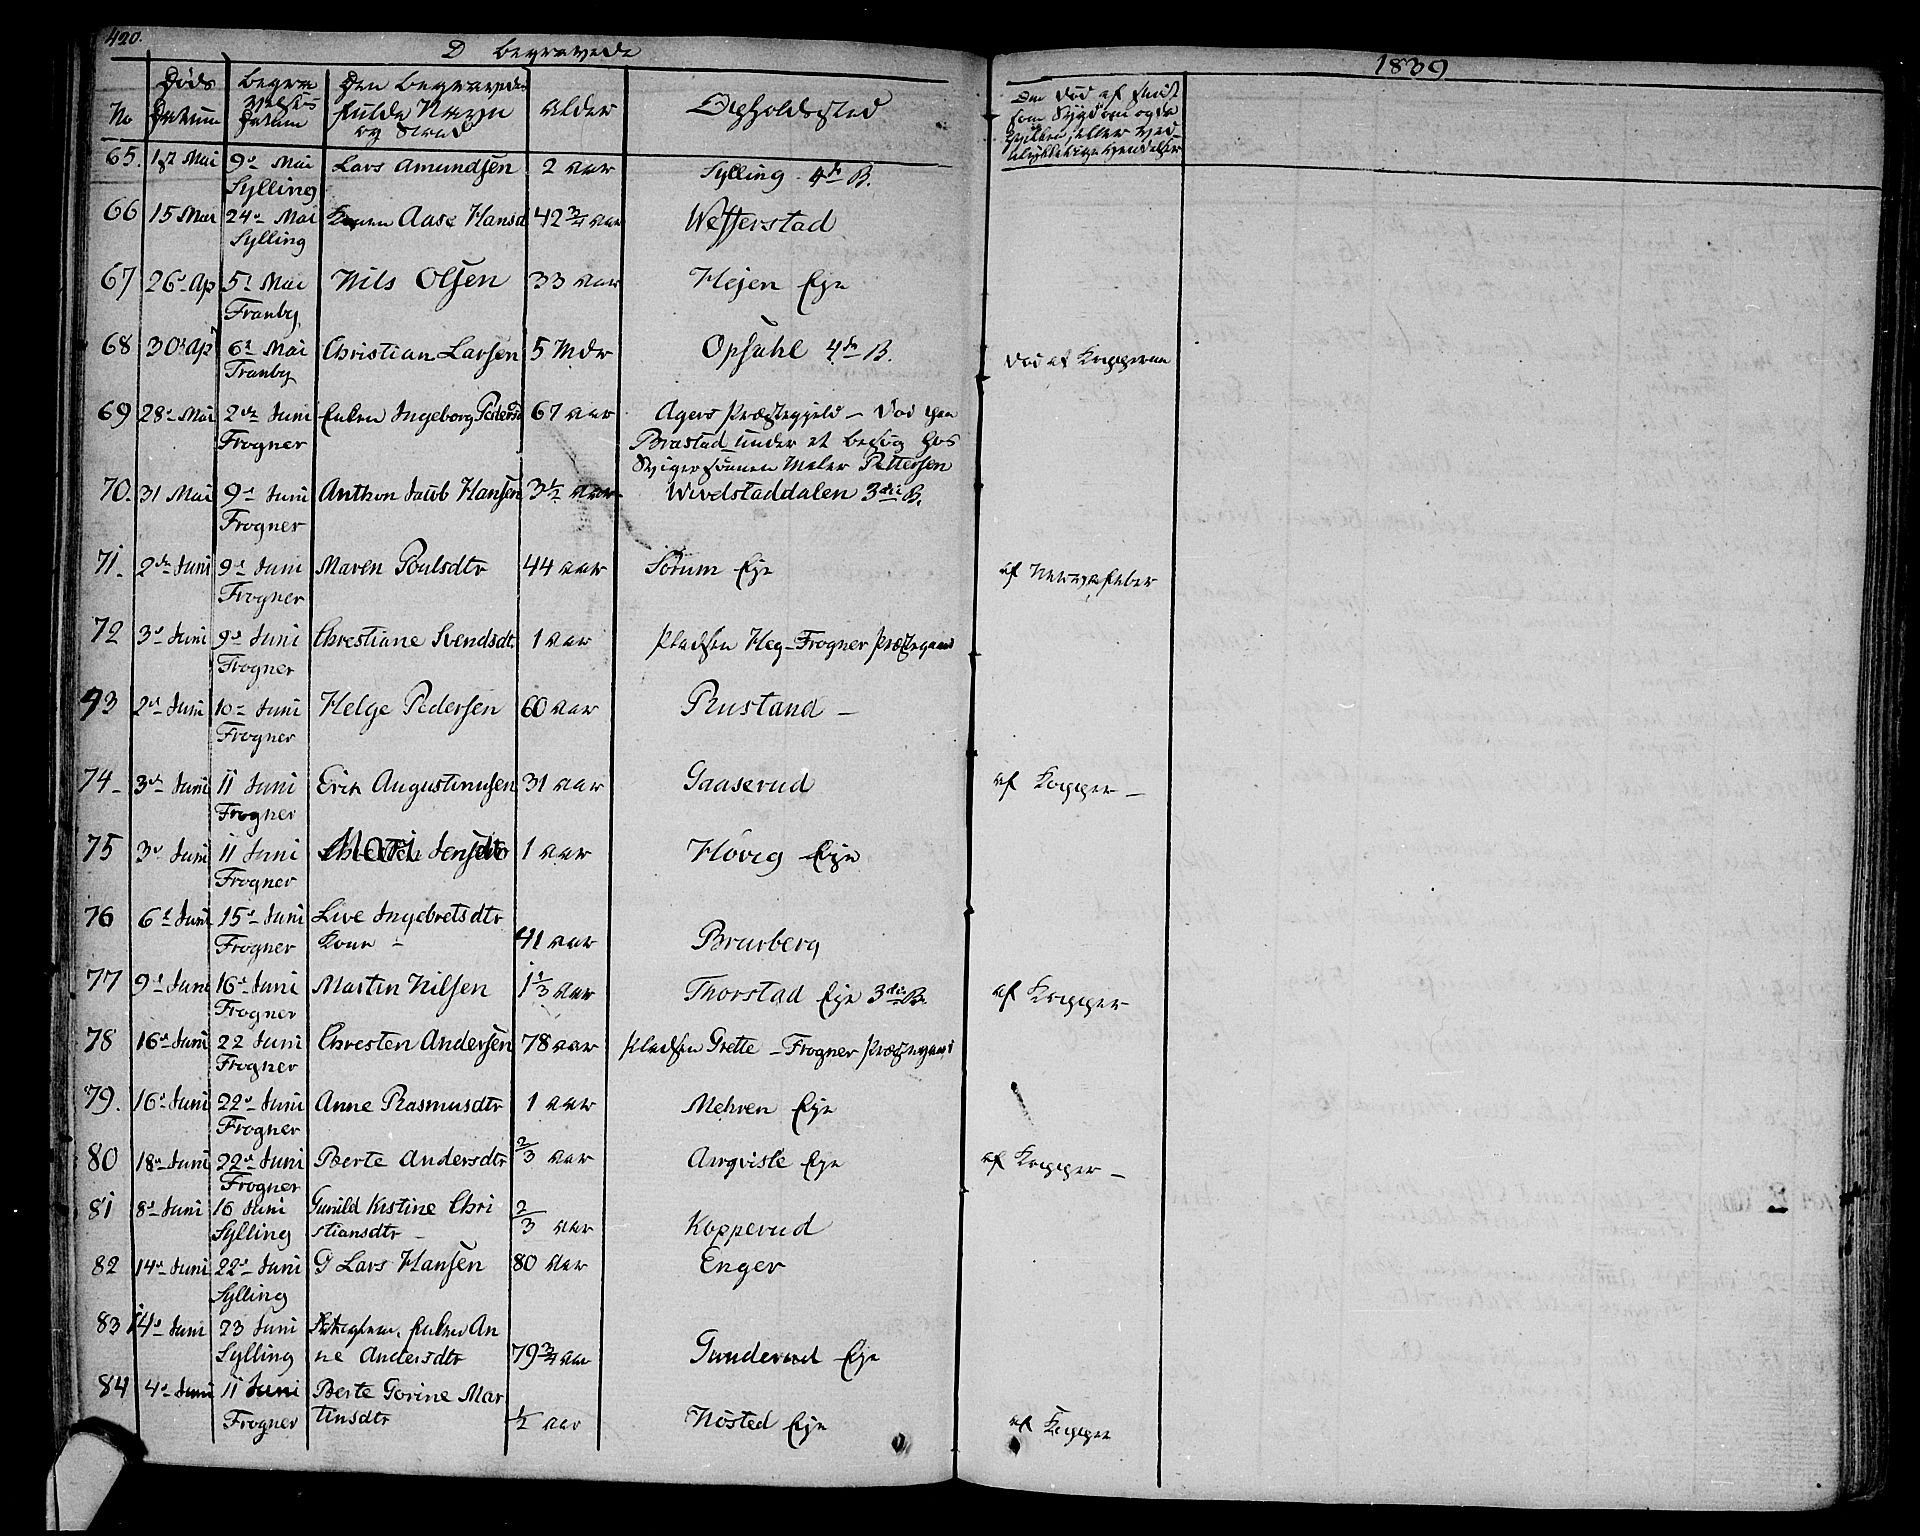 420.
D Begravede
1839
No
Døds Datum
Begravelses Datum
Den Begravedes fulde Navn og Stand
Alder
Opholdssted
Død af hvilken Sygdom
65. 1st Mai 9de Mai Lars Amundsen 2 aar Sylling 4de B.
Sylling
66 15 Mai 24de Mai Karen Aase Hansd 42 3/4 aar Wefferstad
Sylling
67 26de Ap 5te Mai Nils Olsen 33 aar Hejen Eje
Tranby
68 30te Ap 6te Mai Christian Larsen 5 Mdr Opsahl 4de B. Død af Kopperne
Tranby
69 28de Mai 2den Juni Enken Ingeborg Pedersd 67 aar Agers Præstegjeld – Død paa
Frogner Brastad under et besøg hos
Svigersønnen Maler Pettersen
70. 31 Mai 9de Juni Anthon Jacob Hansen 3 1/2 aar Wivelstaddalen 3die B.
Frogner
71. 2den Juni 9de Juni Maren Poulsdtr 44 aar Sørum Eje af Nervefeber
Frogner
72 3die Juni 9de Juni Chrestiane Svendsdt. 1 aar Pladsen Heg – Frogner Præstegaard
Frogner
73 2den Juni 10de Juni Helge Pedersen 60 aar Rustand –
Frogner
74 – 3die Juni 11 Juni Erik Augustinusen 31 aar Gaaserud af Kopper –
Frogner
75 3die Juni 11 Juni Mari Jensdtr 1 aar Høvig Eje
Frogner
76 6te Juni 15de Juni Live Ingebretsdtr
Frogner Kone – 41 aar Brurberg
77 9de Juni 16de Juni Martin Nilsen 1 1/3 aar Thorstad Eje 3die B. af Kopper –
Frogner
78 16de Juni 22 Juni Chresten Andersen 78 aar Pladsen Grette – Frogner Præstegaard
Frogner
79. 16de Juni 22de Juni Anne Rasmusdtr 1 aar Mehren Eje
Frogner
80 18de Juni 22de Juni Berte Andersdtr 2/3 aar Amqvistle Eje af Kopper –
Frogner
81 8de Juni 16 Juni Gunild Kistine Chri
Sylling stiansdtr – 2/3 aar Kopperud
82 14de Juni 22de Juni G Lars Hansen 80 aar Enger
Sylling
83 14de Juni 23 Juni Enken An
Sylling ne Andersdtr 79 3/4 aar Gunderud Eje
84 4de Juni 11 Juni Berte Gorine Mar
Frogner tinsdtr 1/2 aar Nøsted Eje af Kopper